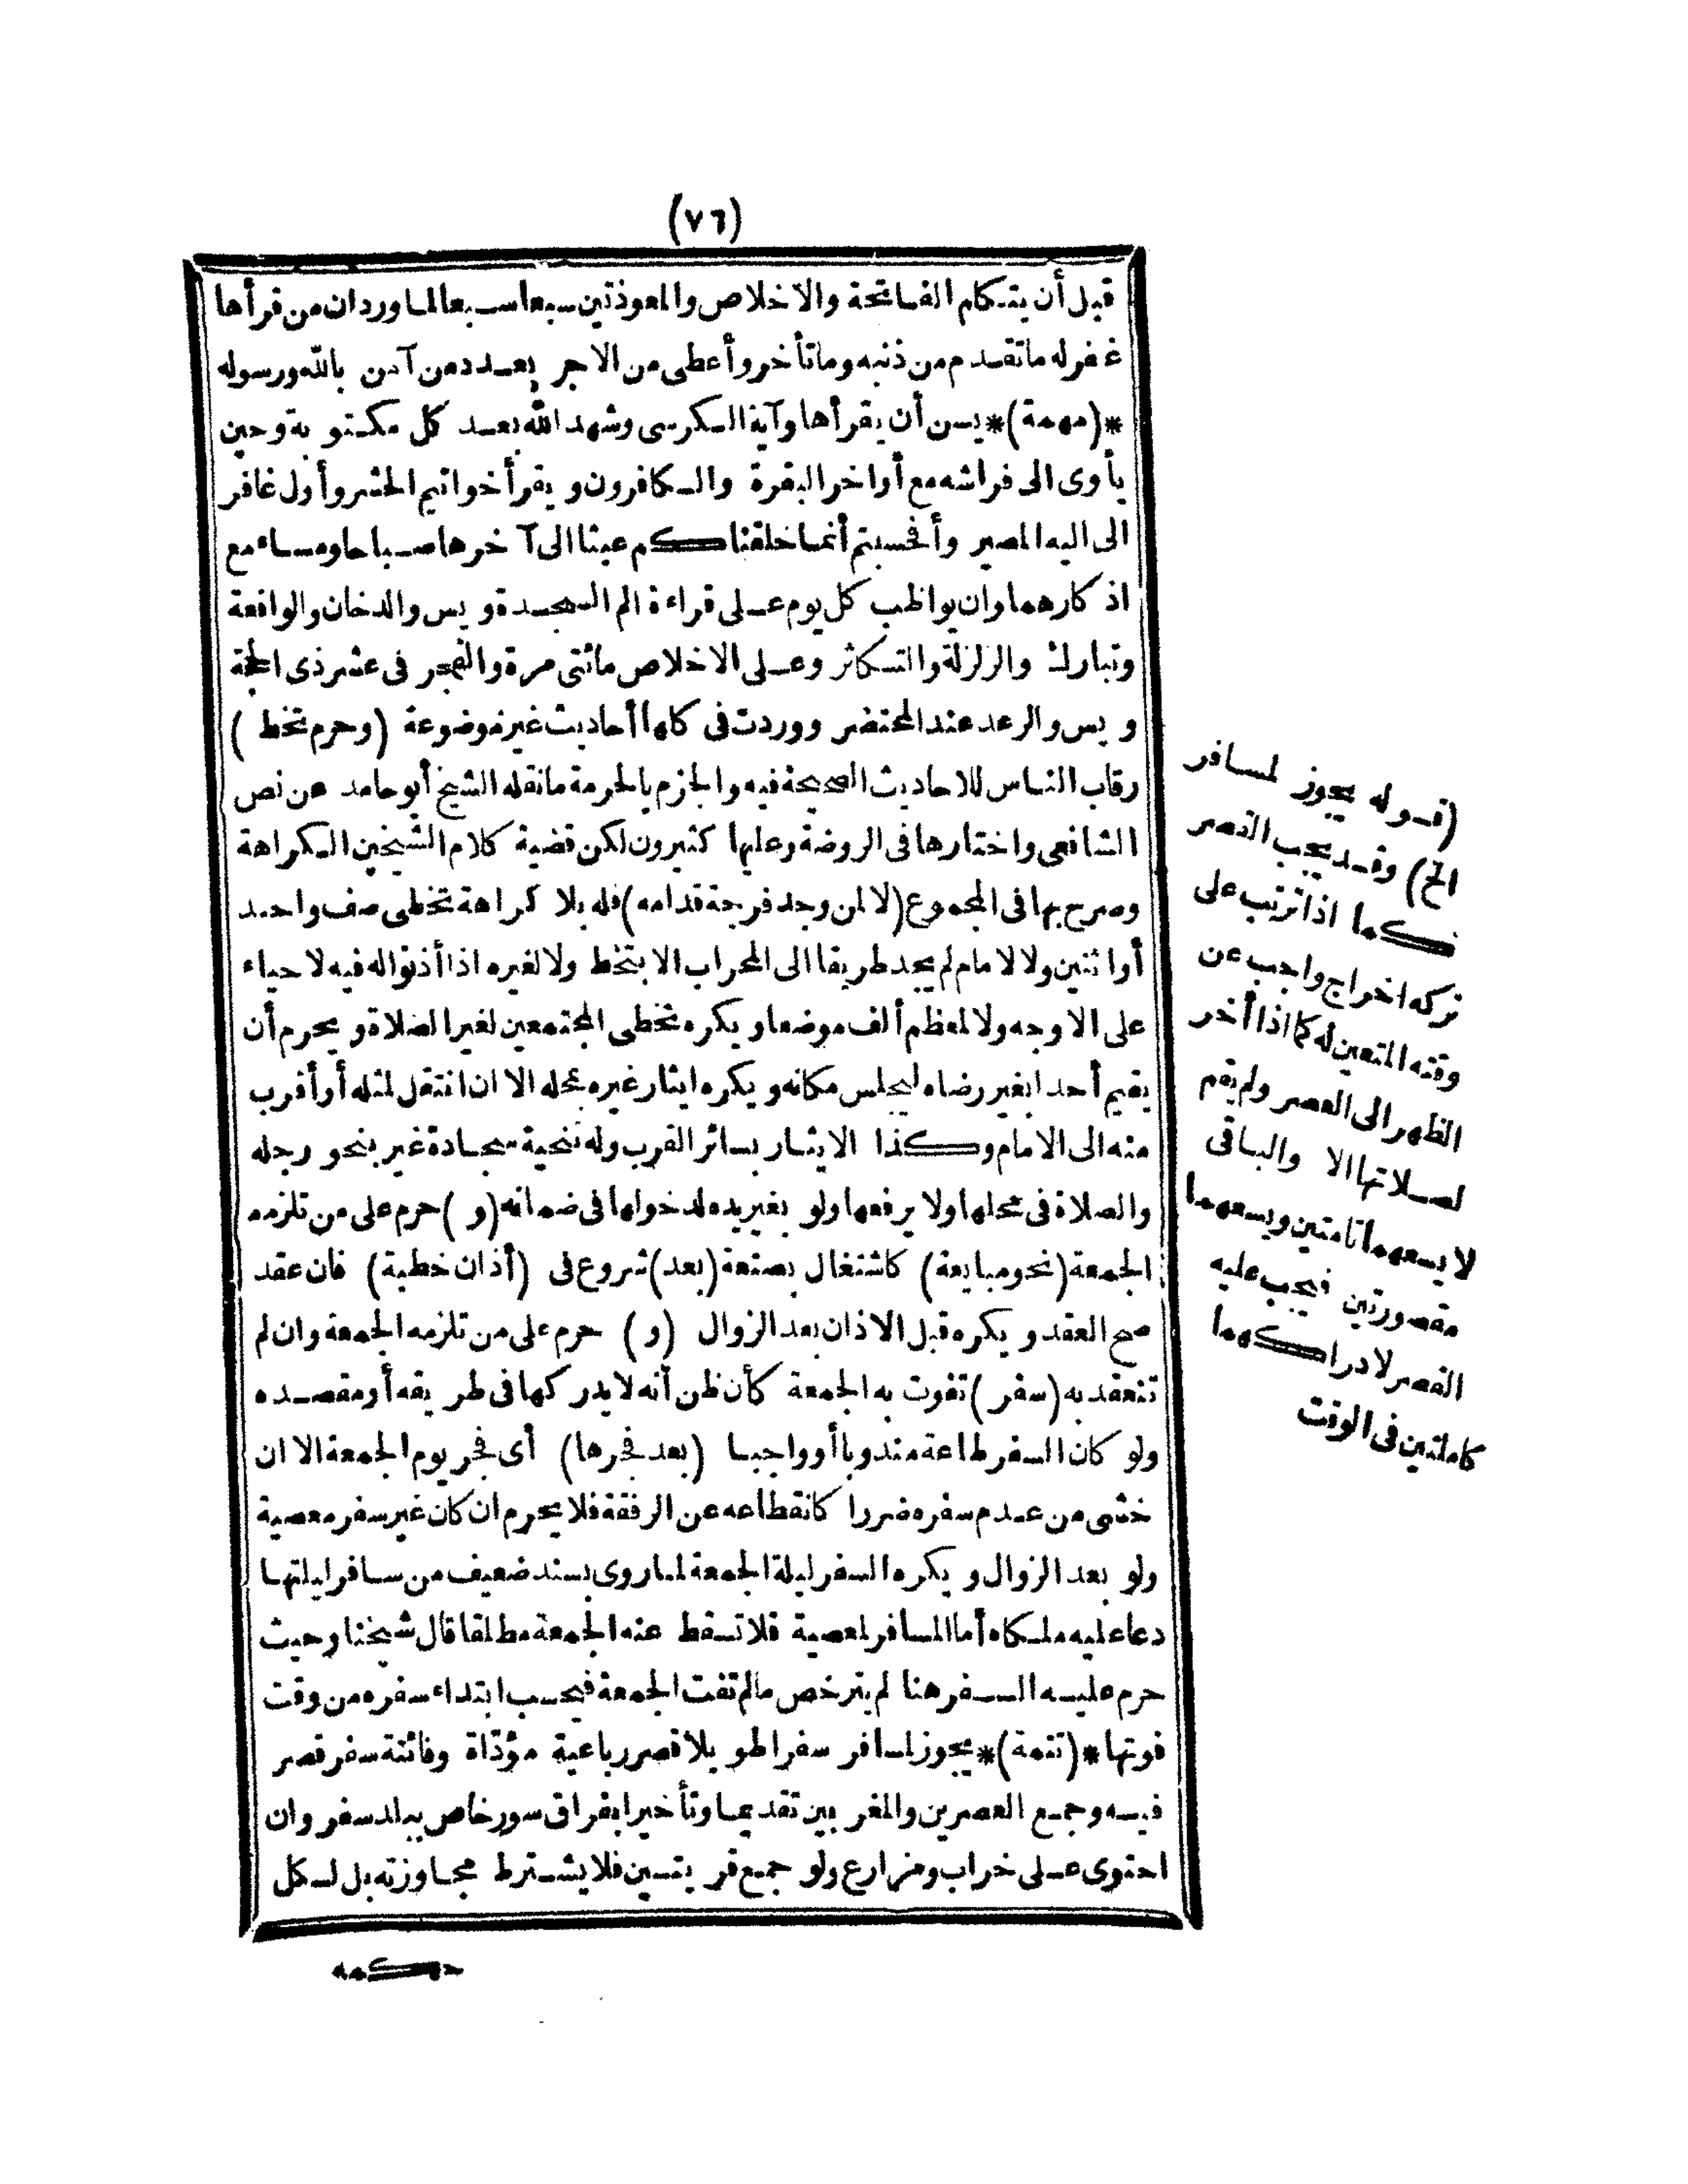 (٧٦)
قبل أن يتكلم الفاتحة والاخلاص والمعوذتين سبعا سبعا لما ورد ان من قرأها
غفر له ما تقدم من ذنبه وما تأخر وأعطى من الاجر بعدد من آمن بالله ورسوله
*(مهمة)* يسن أن يقرأها وآية الكرسى وشهد الله بعد كل مكتوبة وحين
يأوى الى فراشه مع أواخر البقرة والكافرون ويقرأ خواتيم الحشر وأول غافر
الى اليه المصير وأفحسبتم أنما خلقناكم عبثا الى آخرها صباحا ومساء مع
اذكارهما وان يواظب كل يوم على قراءة الم السجدة ويس والدخان والواقعة
وتبارك والزلزلة والتكاثر وعلى الاخلاص مائتى مرة والفجر فى عشر ذى الحجة
ويس والرعد عند المحتضر ووردت فى كلها أحاديث غير موضوعة (وحرم تخط)
رقاب الناس للاحاديث الصحيحة فيه والجزم بالحرمة ما نقله الشيخ أبو حامد عن نص
الشافعى واختارها فى الروضة وعليها كثيرون لكن قضية كلام الشيخين الكراهة
وصرح بها فى المجموع (لا لمن وجد فرجة قدامه) فله بلا كراهة تخطى صف واحد
أو اثنين ولا لامام لم يجد طريقا الى المحراب الا بتخط ولا لغيره اذا أذنوا له فيه لا حياء
على الاوجه ولا لمعظم ألف موضعا ويكره تخطى المجتمعين لغير الصلاة ويحرم أن
يقيم أحدا بغير رضاه ليجلس مكانه ويكره ايثار غيره بمحله الا ان انتقل لمثله أو أقرب
منه الى الامام وكذا الايثار بسائر القرب وله تنحية سجادة غير بنحو رجله
والصلاة فى محلها ولا يرفعها ولو بغير يده لدخولها فى ضمانه (و) حرم على من تلزمه
الجمعة (نحو مبايعة) كاشتغال بصنعة (بعد) شروع فى (أذان خطبة) فان عقد
صح العقد ويكره قبل الاذان بعد الزوال (و) حرم على من تلزمه الجمعة وان لم
تنعقد به (سفر) تفوت به الجمعة كأن ظن أنه لا يدركها فى طريقه أو مقصده
ولو كان السفر طاعة مندوبا أو واجبا (بعد فجرها) أى فجر يوم الجمعة الا ان
خشى من عدم سفره ضررا كانقطاعه عن الرفقة فلا يحرم ان كان غير سفر معصية
ولو بعد الزوال ويكره السفر ليلة الجمعة لما روى بسند ضعيف من سافر ليلتها
دعا عليه ملكاه أما المسافر لمعصية فلا تسقط عنه الجمعة مطلقا قال شيخنا وحيث
حرم عليه السفر هنا لم يترخص ما لم تفت الجمعة فيحسب ابتداء سفره من وقت
فوتها *(تتمة)* يجوز لمسافر سفرا طويلا قصر رباعية مؤدّاة وفائتة سفر قصر
فيه وجمع العصرين والمغربين تقديما وتأخيرا بفراق سور خاص ببلد سفر وان
احتوى على خراب ومزارع ولو جمع قريتين فلا يشترط مجاوزته بل لكل
حكمه
(قوله يجوز لمسافر
الخ) وقد يجب القصر
كما اذا ترتب على
تركه اخراج واجب عن
وقته المتعين له كما اذا أخر
الظهر الى العصر ولم يقم
لصلاتها الا والباقى
لا يسعهما تامتين ويسعهما
مقصورتين فيجب عليه
القصر لادراكهما
كاملتين فى الوقت